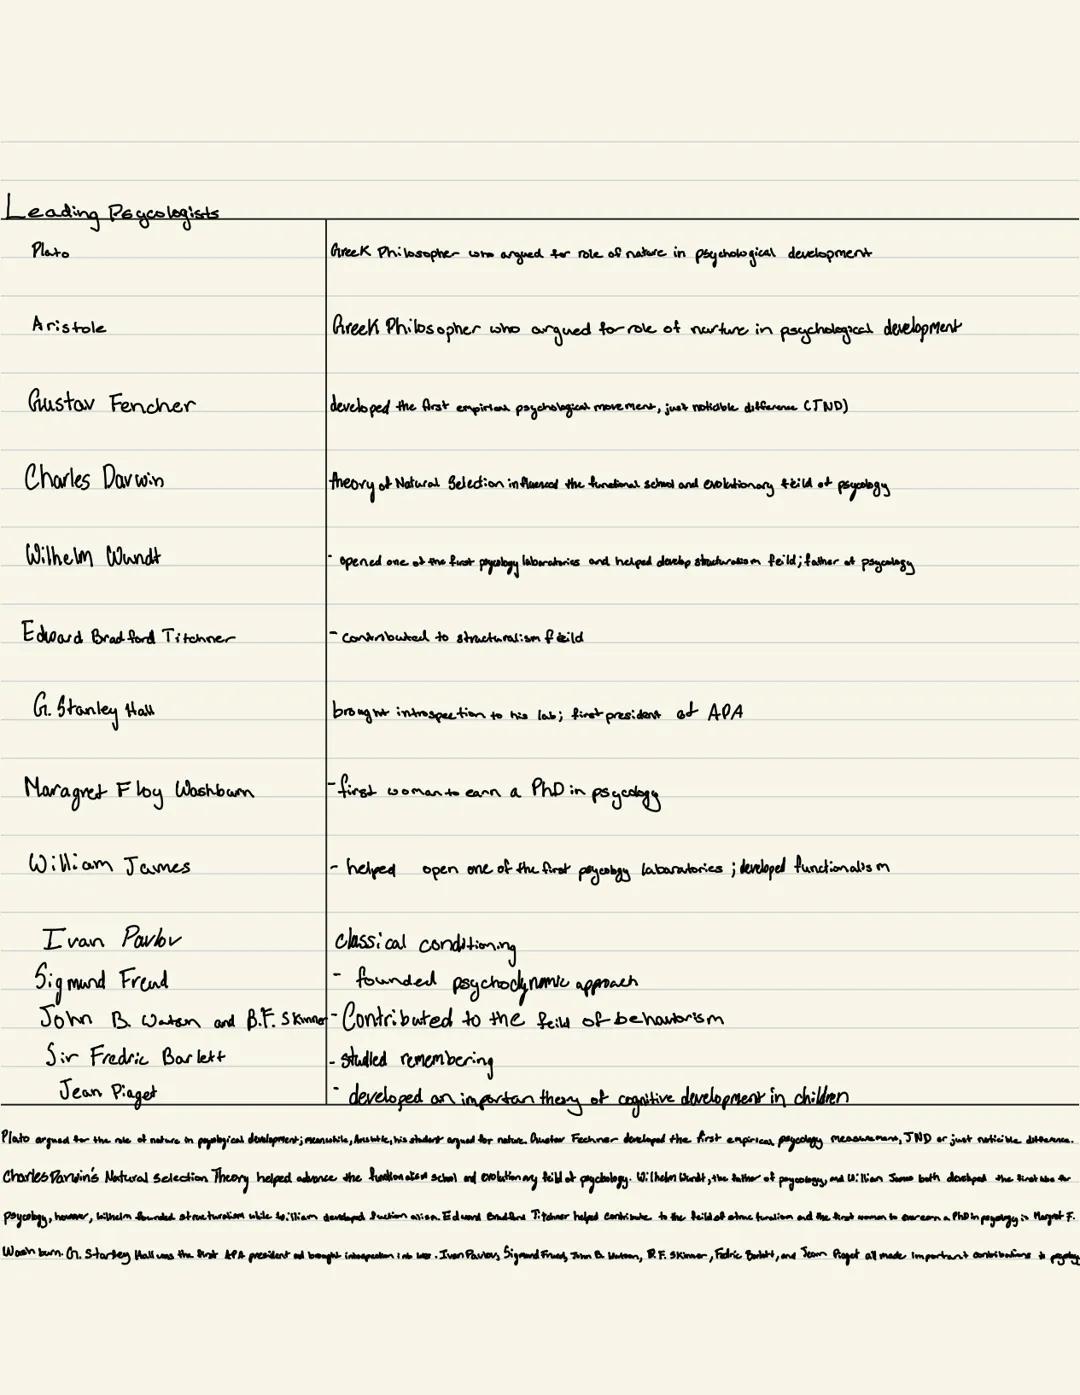 Leading Psycologists
Plato Greek Philosopher who argued for role of nature in psychological development
Aristole Greek Philosopher who argued for role of nurture in psychological development
Gustav Fencher developed the first empirical psychological movement, just noticible difference (JND)
Charles Darwin theory of Natural Selection influenced the functional school and evolutionary feild of psycology
Wilhelm Wundt - opened one of the first psycology laboratories and helped develop structuralism feild; father of psycology
Edward Bradford Titchner - contributed to structuralism feild
G. Stanley Hall brought introspection to his lab; first president of APA
Maragret Floy Washburn - first woman to earn a PhD in psycology
William James - helped open one of the first psycology labaratories ; developed functionalism
Ivan Pavlov classical conditioning
Sigmund Freud - founded psychodynamic approach
John B. Watson and B.F. Skinner - Contributed to the feild of behaviorism
Sir Fredric Barlett - studied remembering
Jean Piaget - developed an importan theory of cognitive development in children
Plato argued for the role of nature in development; meanwhile, Aristotle, his student argued for nature. Gustav Fechner developed the first empirical psycology measurement, JND or just noticible difference.
Charles Darwin's Natural selection Theory helped advance the school and evolutionary feild of psychology. Wilhelm Wundt, the father of psycology, and William James both developed the first labs for
psycology, however, Wilhelm founded structuralism while William developed. Edward Bradford Titchner helped contribute to the feild of structuralism and the first woman to earn a PhD in psycology is Margret F.
Washburn. G. Stanley Hall was the first APA president and brought introspection. Ivan Pavlov, Sigmund Freud, John B. Watson, B.F. Skinner, Fedric Bartlett, and Jean Piaget all made important contributions to